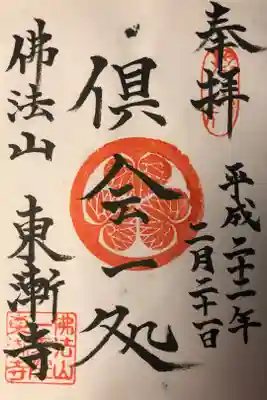 奉拝
平成二十二年
二月二十一日
倶会一処
佛法山
東漸寺
佛法山